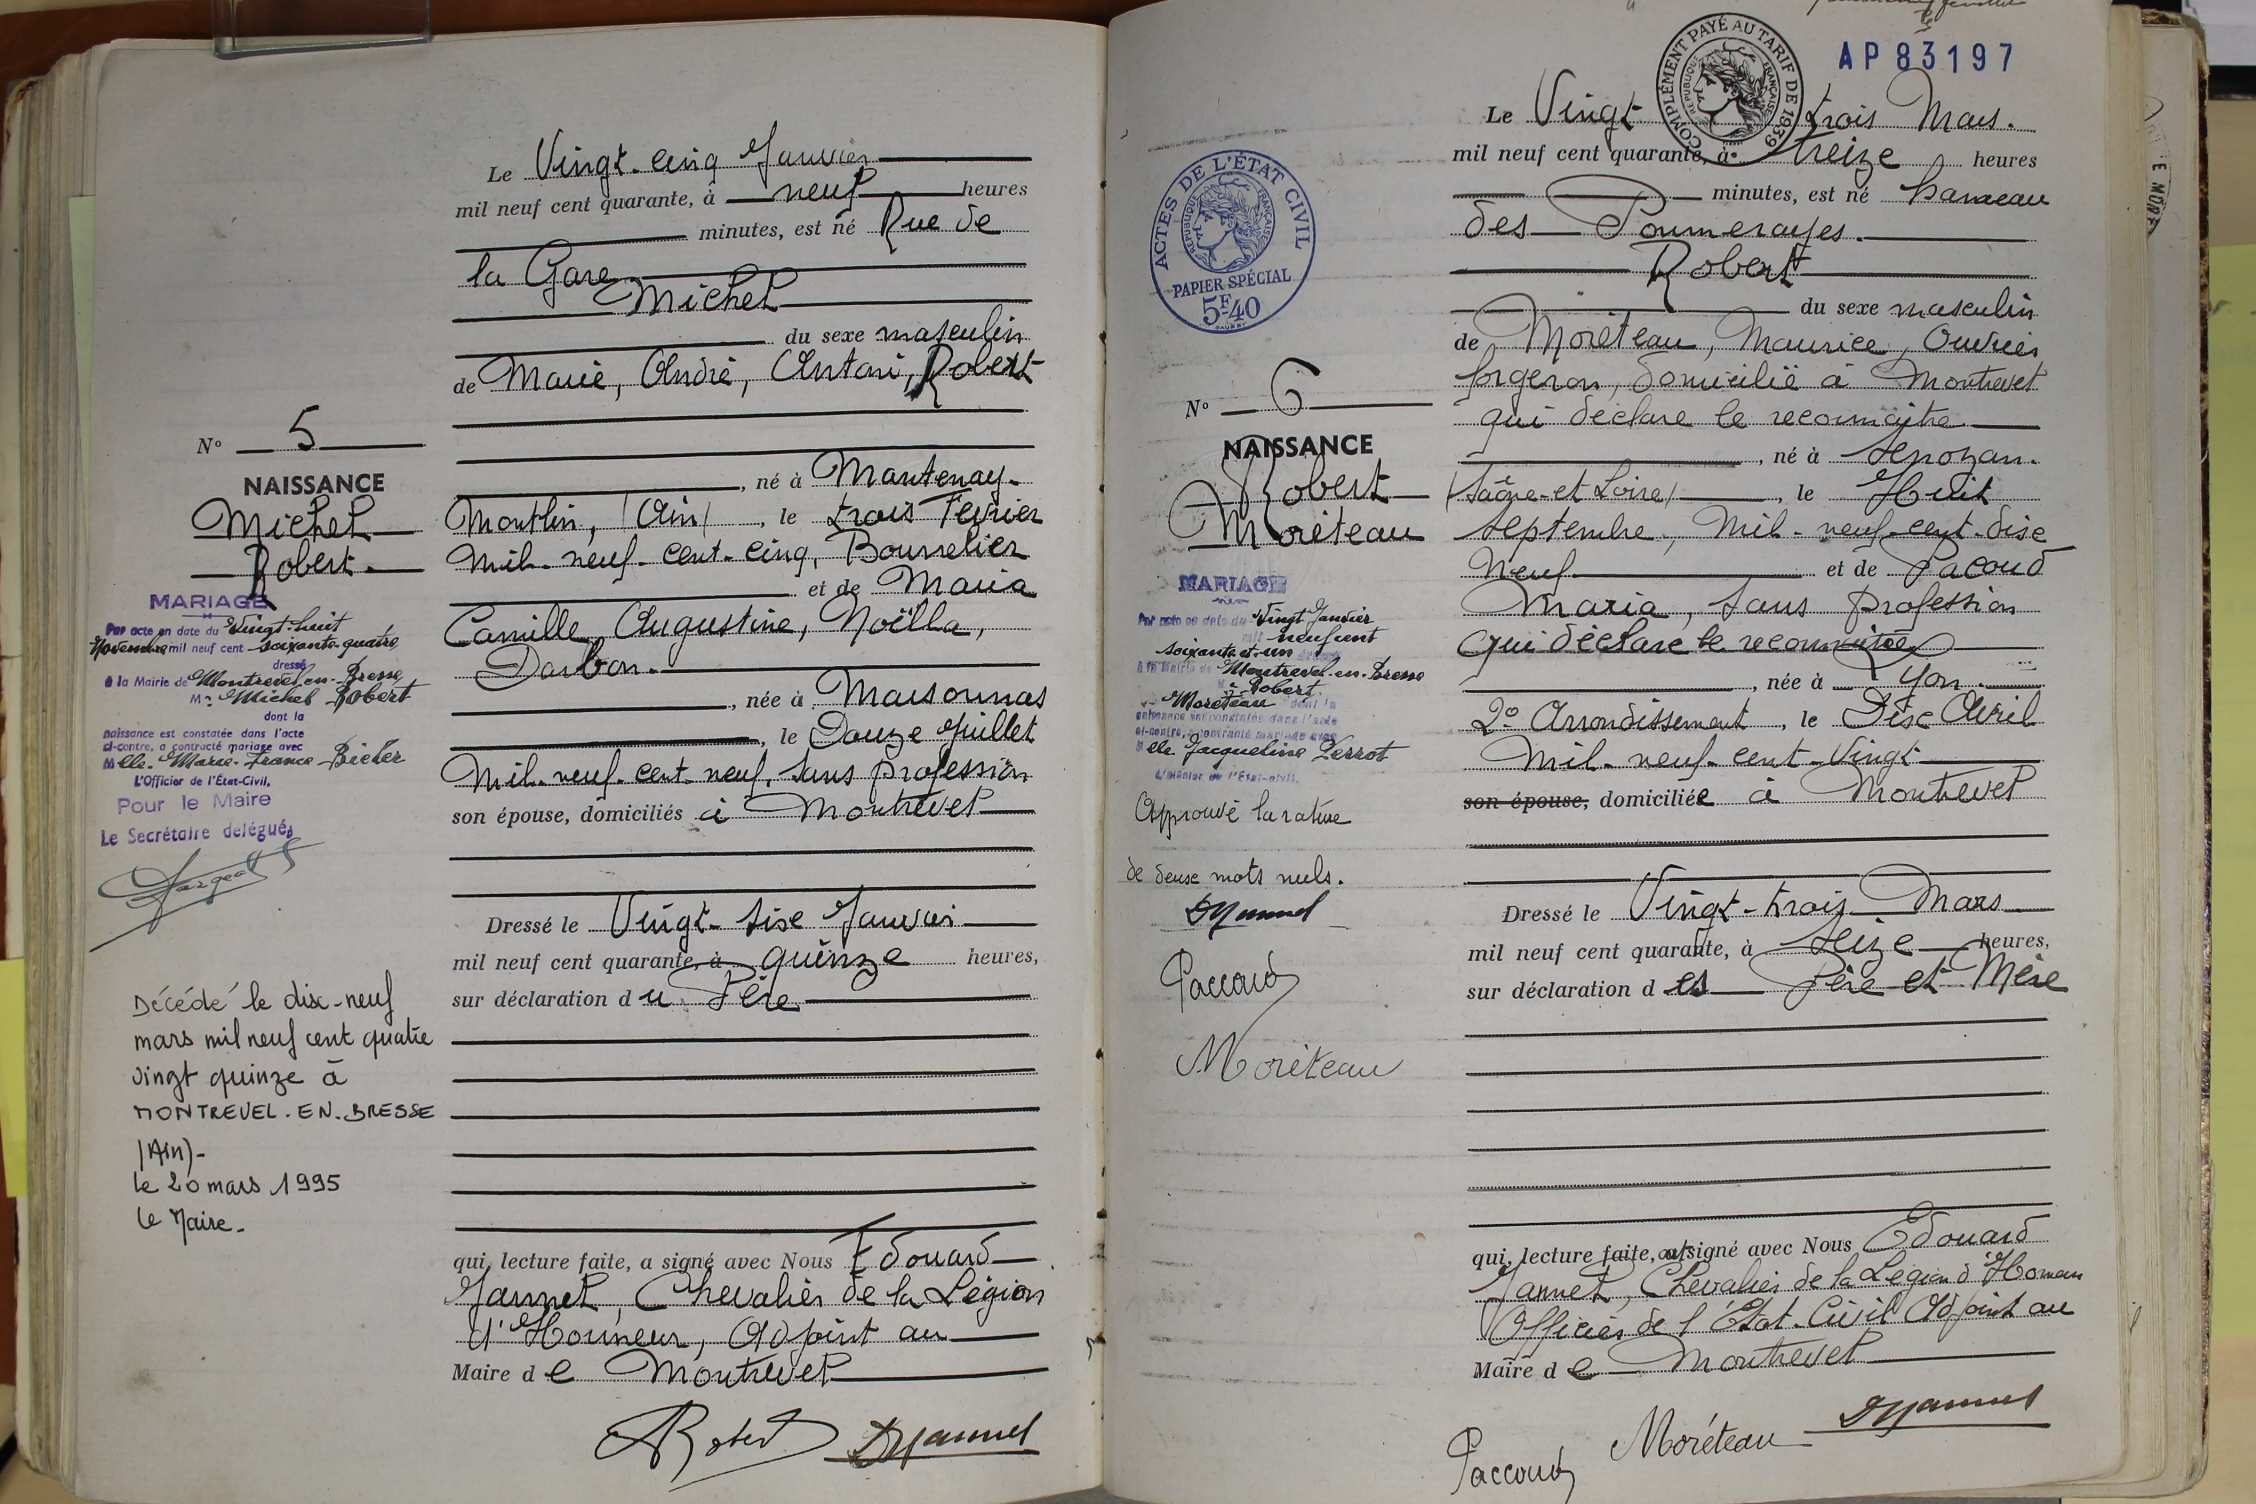 Le Vingt-cinq Janvier
mil neuf cent quarante, à neuf heures
minutes, est né Rue de
la Gare
Michel
du sexe masculin
de Marie, André, Antoni, Robert
, né à Mantenay-
Montlin, (Ain) , le trois Fevrier
mil-neuf-cent-cinq, Bourrelier
et de Maria
Camille, Augustine, Noëlla,
Darbon.
, née à Marsonnas
, le Douze Juillet
Mil-neuf-cent-neuf, sans profession
son épouse, domiciliés à Montrevel
Dressé le Vingt-sixe Janvier
mil neuf cent quarante, à quinze heures,
sur déclaration du Père
qui, lecture faite, a signé avec Nous Edouard
Jannel, Chevalier de la Légion
d'Honneur, Adjoint au
Maire de Montrevel
Robert DJannel
No 5
NAISSANCE
Michel
Robert.
MARIAGE
Par acte en date du Vingt-huit
Novembre mil neuf cent soixante-quatre
dressé
à la Mairie de Montrevel-en-Bresse
Mr Michel Robert
dont la
naissance est constatée dans l'acte
ci-contre, a contracté mariage avec
Melle Marie-France
L'Officier de l'État-Civil,
Pour le Maire
Le Secrétaire délégué,
Décédé le dix-neuf
mars mil neuf cent quatre
vingt quinze à
MONTREVEL-EN-BRESSE
(AIN)-
le 20 mars 1995
le Maire-
COMPLÉMENT PAYÉ AU TARIF DE 1939
RÉPUBLIQUE FRANÇAISE
AP 83197
Le Vingt trois Mars.
mil neuf cent quarante, à treize heures
minutes, est né hameau
des Poumerayes.
Robert
du sexe masculin
de Moréteau, Maurice, Ouvrier
forgeron, domicilié à Montrevel
qui déclare le reconnaitre
, né à Senozan.
(Saône-et-Loire) , le Huit
septembre, Mil-neuf-cent-dixe
Neuf et de Pacoud
Maria, sans profession
qui déclare le reconnaitre
, née à Lyon.
2o Arrondissement , le Dixe Avril
Mil-neuf-cent-Vingt
son épouse, domiciliée à Montrevel
Dressé le Vingt-trois Mars
mil neuf cent quarante, à seize heures,
sur déclaration des Père et Mère
qui, lecture faite, ont signé avec Nous Edouard
Jannel, Chevalier de la Légion d'Honneur
Officier de l'Etat-Civil Adjoint au
Maire de Montrevel
Paccoud Moréteau DJannel
ACTES DE L'ÉTAT CIVIL
RÉPUBLIQUE FRANÇAISE
PAPIER SPÉCIAL
5F40
No 6
NAISSANCE
Robert
Moréteau
MARIAGE
Par acte en date du Vingt Janvier
mil neuf cent
soixante et un dressé
à la Mairie de Montrevel-en-Bresse
Mr Robert
Moréteau dont la
naissance est constatée dans l'acte
ci-contre, a contracté mariage avec
Melle Jacqueline Perrot
L'Officier de l'État-civil.
Approuvé la rature
de deuxe mots nuls.
DJannel
Paccoud
Moréteau